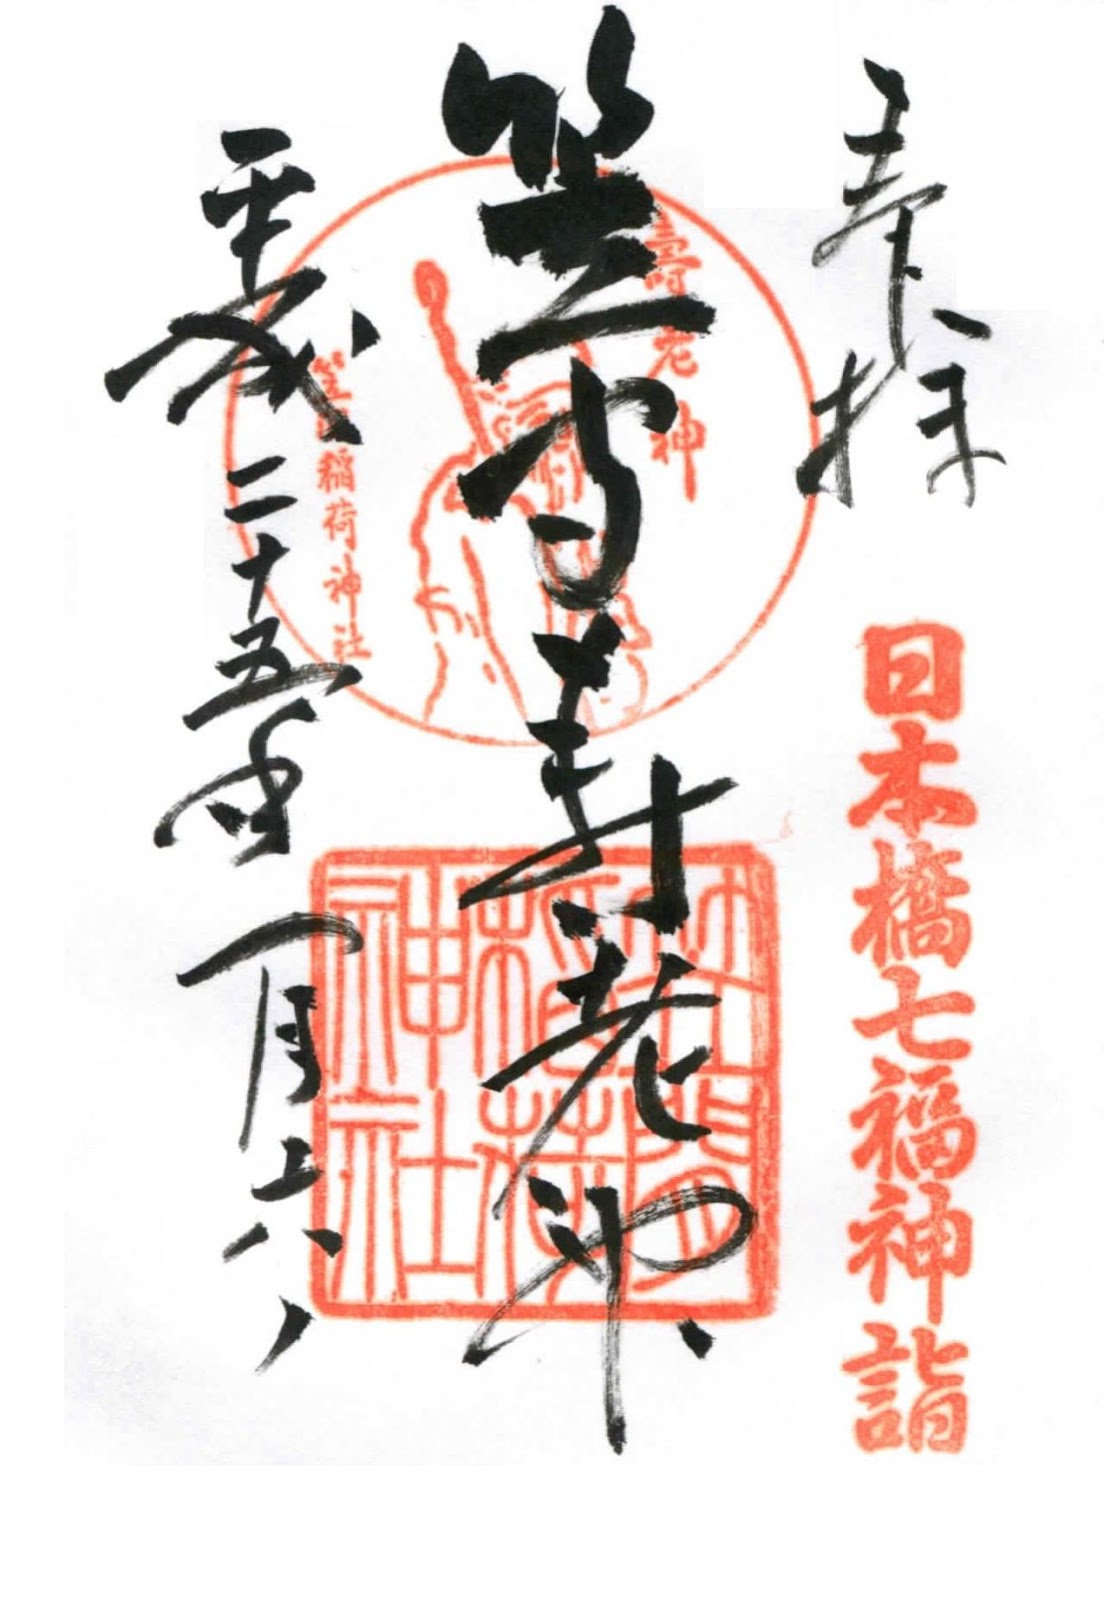 奉拝
日本橋七福神詣
壽老神
笠間寿老神
笠間稲荷神社
笠間
稲荷
神社
平成二十五年一月六日